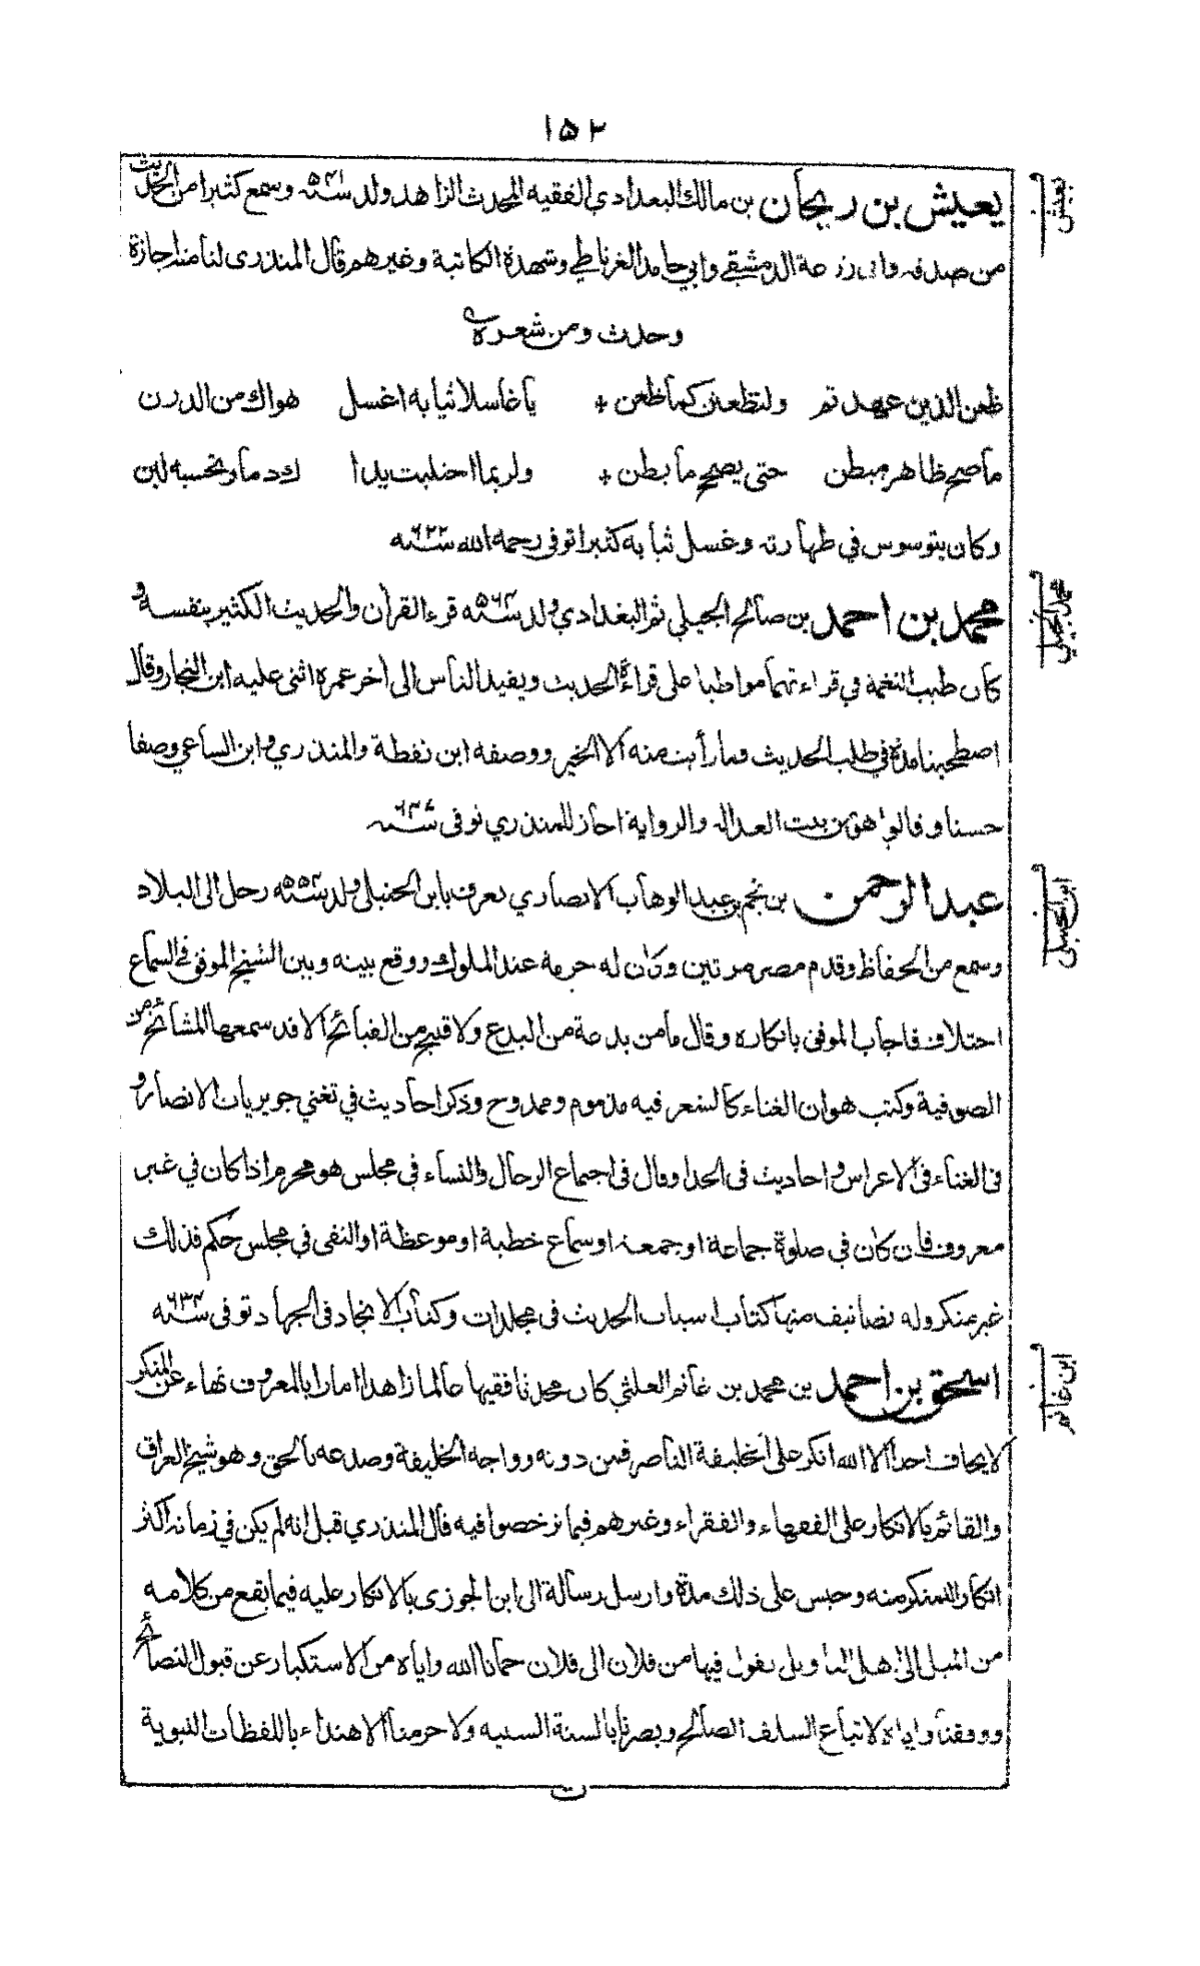 ١٥٢
يعيش بن ريحان بن مالك البعدادي الفقيه المحدث الزاهد ولد سنة ٥٤١ وسمع كثيرا من الحديث
يعيش
من صدقه وابى زرعة الدمشقي وابي حامد الغرناطي وشهدة الكاتبة وغيرهم قال المنذرى لنا منه اجازة
وحدث ومن شعره
ظعن الذين عهدتم ولتظعن كما ظعن + يا غاسلا ثيابه اغسل هواك من الدرن
ما صح ظاهر مبطن حتى يصح ما بطن + ولربما احتلبت يداك دما وتحسبه لبن
وكان يتوسوس في طهارته وغسل ثيابه كثيرا توفى رحمه الله سنة ٦٢٢
محمد بن احمد بن صالح الجيلي ثم البغدادي ولد سنة ٥٦٤ قرء القرآن والحديث الكثير بنفسه و
محمد الجيلي
كان طيب النغمة في قراءتهما مواظبا على قراءة الحديث ويفيد الناس الى آخر عمره اثنى عليه ابن النجار وقال
اصطحبنا مدة في طلب الحديث وما رأيت منه الا الخير ووصفه ابن نقطة والمنذري وابن الساعي وصفا
حسنا وقالوا هو من بيت العدالة والرواية اجاز للمنذري توفى سنة ٦٣٤
عبد الرحمن بن نجم بن عبد الوهاب الانصاري يعرف بابن الحنبلي ولد سنة ٥٥٤ رحل الى البلاد
ابن الحنبلي
وسمع من الحفاظ وقدم مصر مرتين وكان له حرمة عند الملوك ووقع بينه وبين الشيخ الموفق في السماع
اختلاف فاجاب الموفق بانكاره وقال ما من بدعة من البدع ولا قبيح من القبائح الا قد سمعها المشائخ من
الصوفية وكتب هو ان الغناء كالشعر فيه مذموم وممدوح وذكر احاديث في تغني جويريات الانصار و
فى الغناء فى الاعراس واحاديث فى الحدا وقال فى اجماع الرجال والنساء في مجلس هو محرم اذا كان في غير
معروف فان كان في صلوة جماعة او جمعة او سماع خطبة او موعظة او التقى في مجلس حكم فذلك
غير منكر وله تصانيف منها كتاب اسباب الحديث فى مجلدات وكتاب الانجاد فى الجهاد توفى سنة ٦٣٤
اسحق بن احمد بن محمد بن غانم العلثي كان محدثا فقيها عالما زاهدا امارا بالمعروف نهاء عن المنكر
ابن غانم
لا يخاف احدا الا الله انكر على الخليفة الناصر فمن دونه وواجه الخليفة وصدعه بالحق وهو شيخ العراق
والقائم بالانكار على الفقهاء والفقراء وغيرهم فيما ترخصوا فيه قال المنذري قيل انه لم يكن في زمانه اكثر
انكار للمنكر منه وحبس على ذلك مدة وارسل رسالة الى ابن الجوزى بالانكار عليه فيما يقع من كلامه
من الميل الى اهل التاويل يقول فيها من فلان الى فلان حمانا الله واياه من الاستكبار عن قبول النصائح
ووفقنا واياه لاتباع السلف الصالح وبصرنا بالسنة السنيه ولا حرمنا الاهتداء باللفظات النبوية
ت